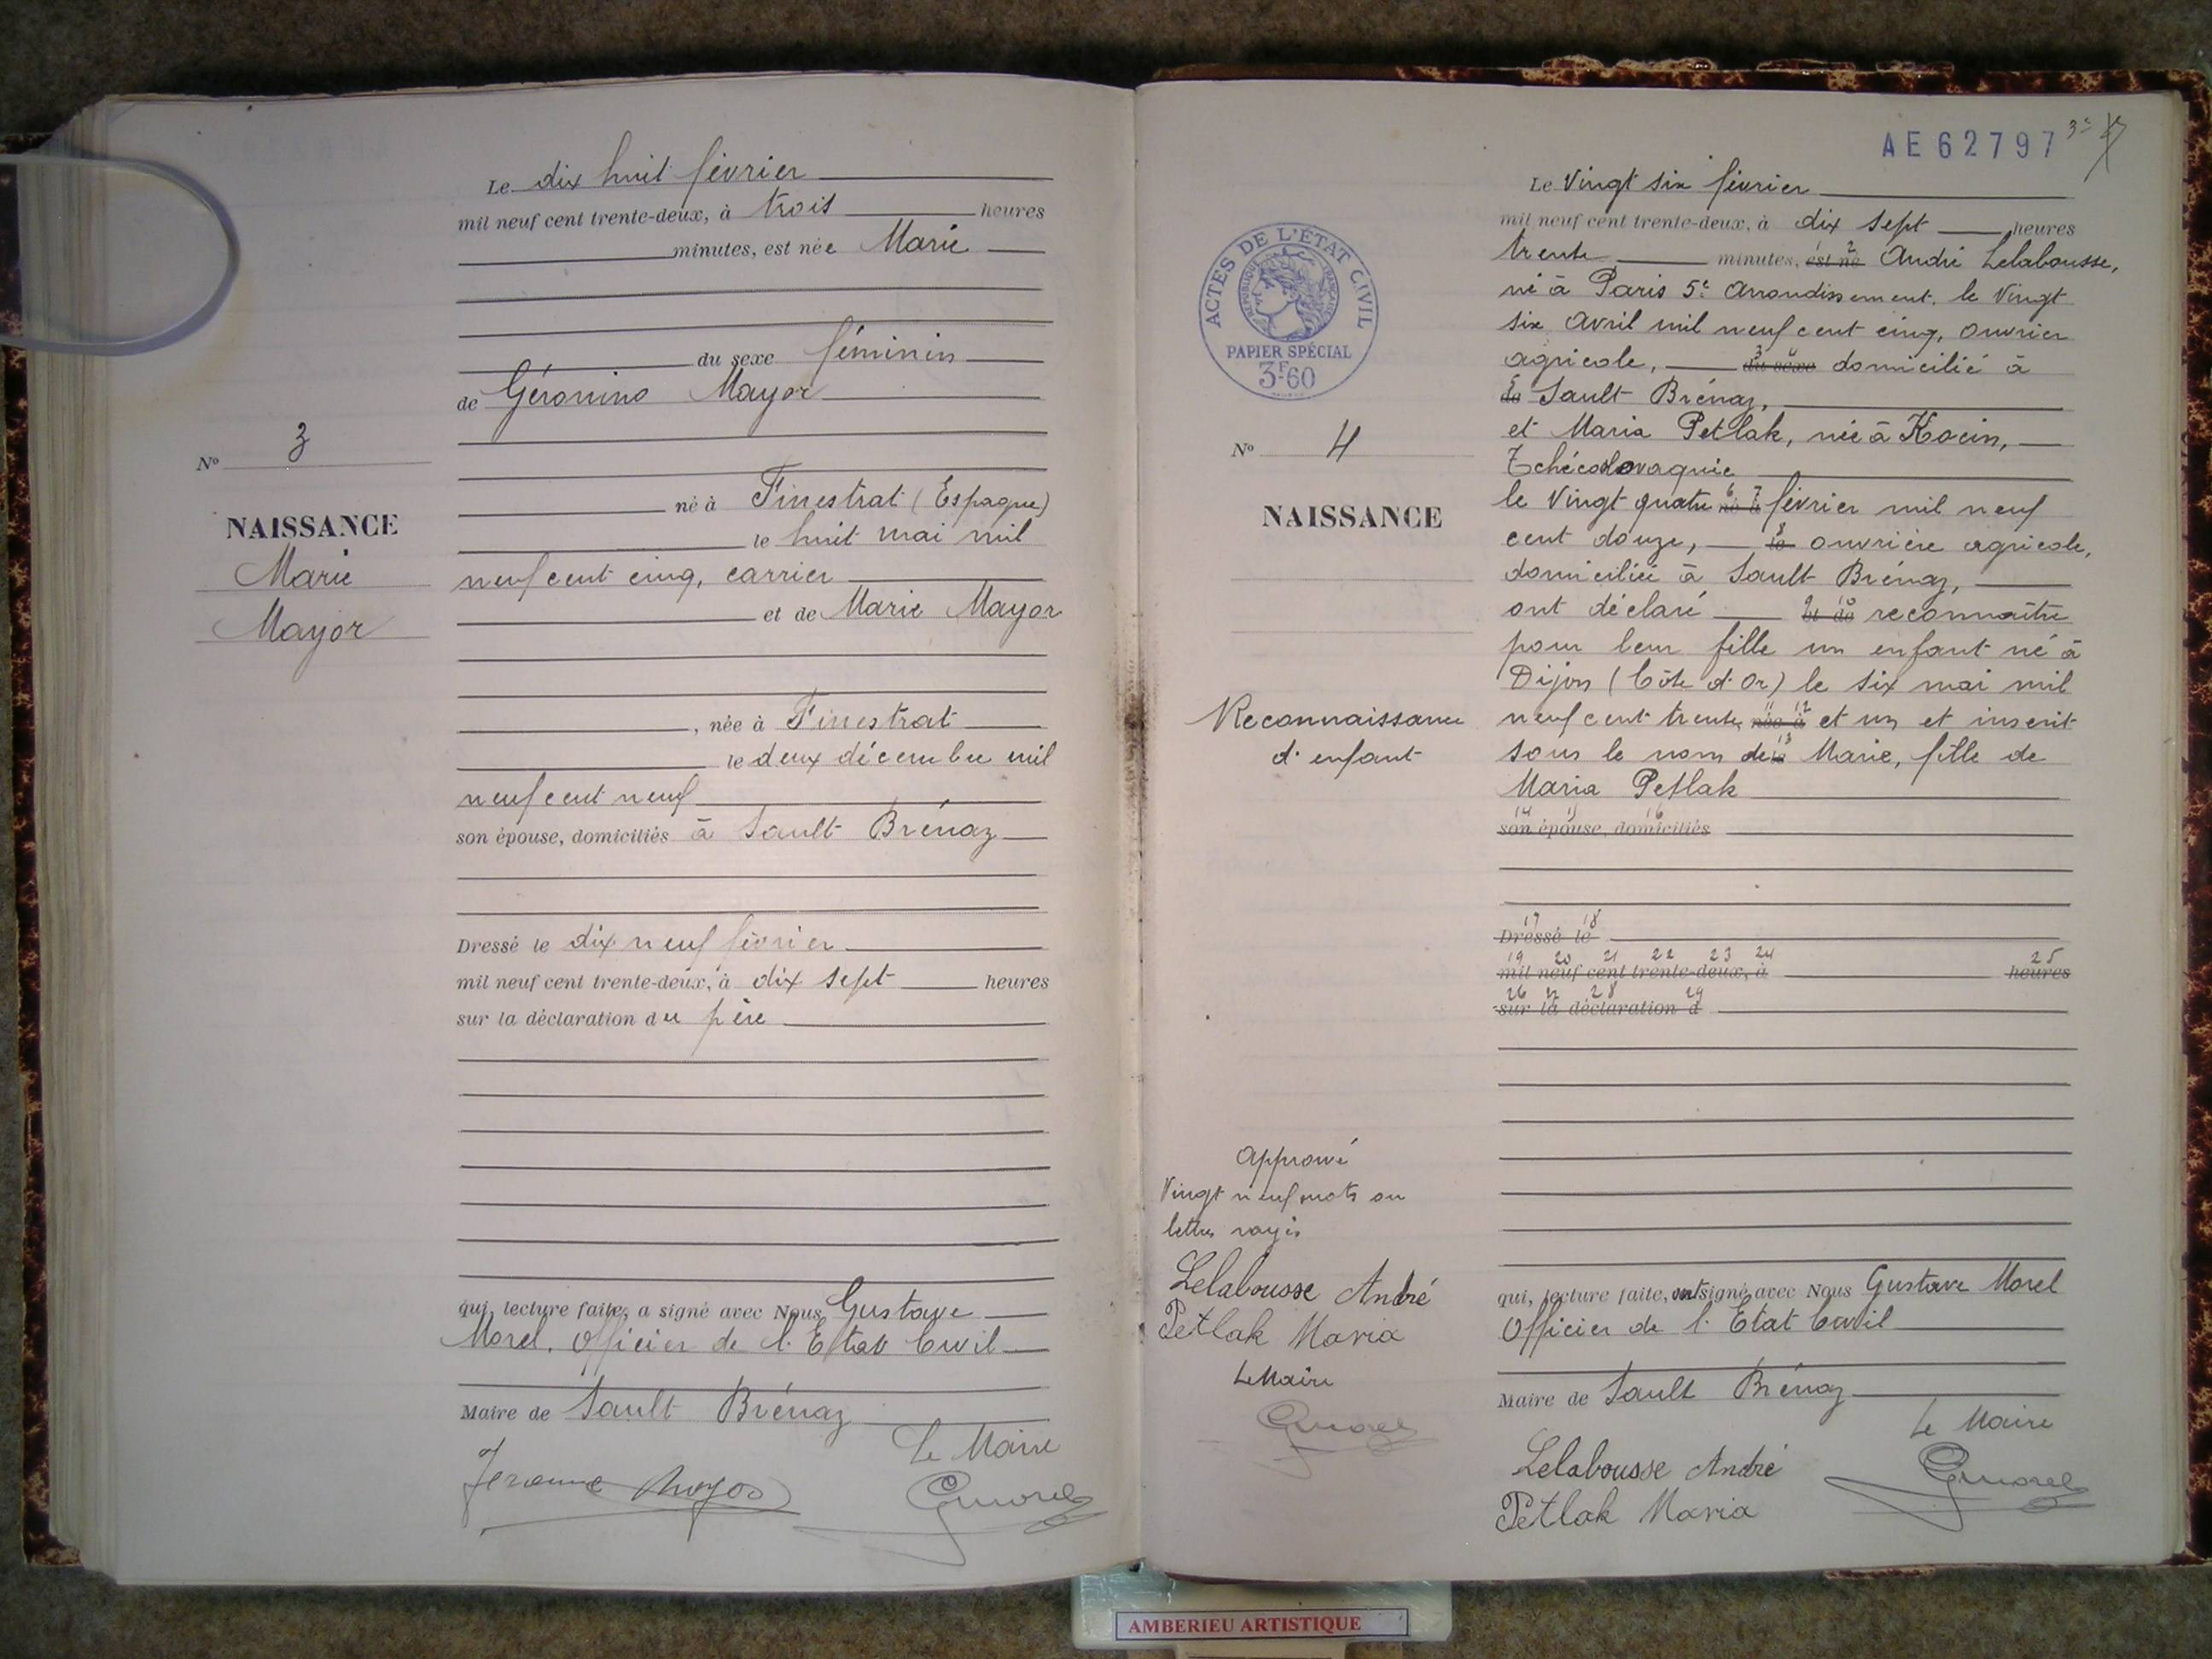 Le dix huit février
mil neuf cent trente-deux, à trois heures
minutes, est née Marie
du sexe féminin
de Géronimo Mayor
N° 3
né à Finestrat (Espagne)
NAISSANCE
le huit mai mil
Marie
neuf cent cinq, carrier
Mayor
et de Marie Mayor
, née à Finestrat
le deux décembre mil
neuf cent neuf
son épouse, domiciliés à Sault Brénaz
Dressé le dix neuf février
mil neuf cent trente-deux, à dix sept heures
sur la déclaration du père
qui, lecture faite, a signé avec Nous Gustave
Morel, Officier de l'Etat Civil
Maire de Sault Brénaz
Le Maire
AE62797
Le Vingt six février
mil neuf cent trente-deux, à dix sept heures
trente minutes, est né 2 André Lelabousse,
né à Paris 5e Arrondissement, le Vingt
six Avril mil neuf cent cinq, ouvrier
agricole, du sexe 3 4 domicilié à
de Sault Brénaz,
et Maria Petlak, née à Kocin,
Tchécoslovaquie
le Vingt quatre né à 6 7 février mil neuf
cent douze, le 8 ouvrière agricole,
domiciliée à Sault Brénaz,
ont déclaré et de 9 10 reconnaître
pour leur fille un enfant né à
Dijon (Côte d'Or) le six mai mil
neuf cent trente née à 11 12 et un et inscrit
sous le nom de le 13 Marie, fille de
Maria Petlak
14 15 16
son épouse, domiciliés
17 18
Dressé le
19 20 21 22 23 24 25
mil neuf cent trente-deux, à heures
26 27 28 29
sur la déclaration d
qui, lecture faite, ont signé avec Nous Gustave Morel
Officier de l'Etat Civil
Maire de Sault Brénaz
Le Maire
Lelabousse André
Petlak Maria
ACTES DE L'ÉTAT CIVIL
RÉPUBLIQUE FRANÇAISE
PAPIER SPÉCIAL
3F60
N° 4
NAISSANCE
Reconnaissance
d'enfant
Approuvé
Vingt neuf mots ou
lettres rayés
Lelabousse André
Petlak Maria
Le Maire
AMBERIEU ARTISTIQUE